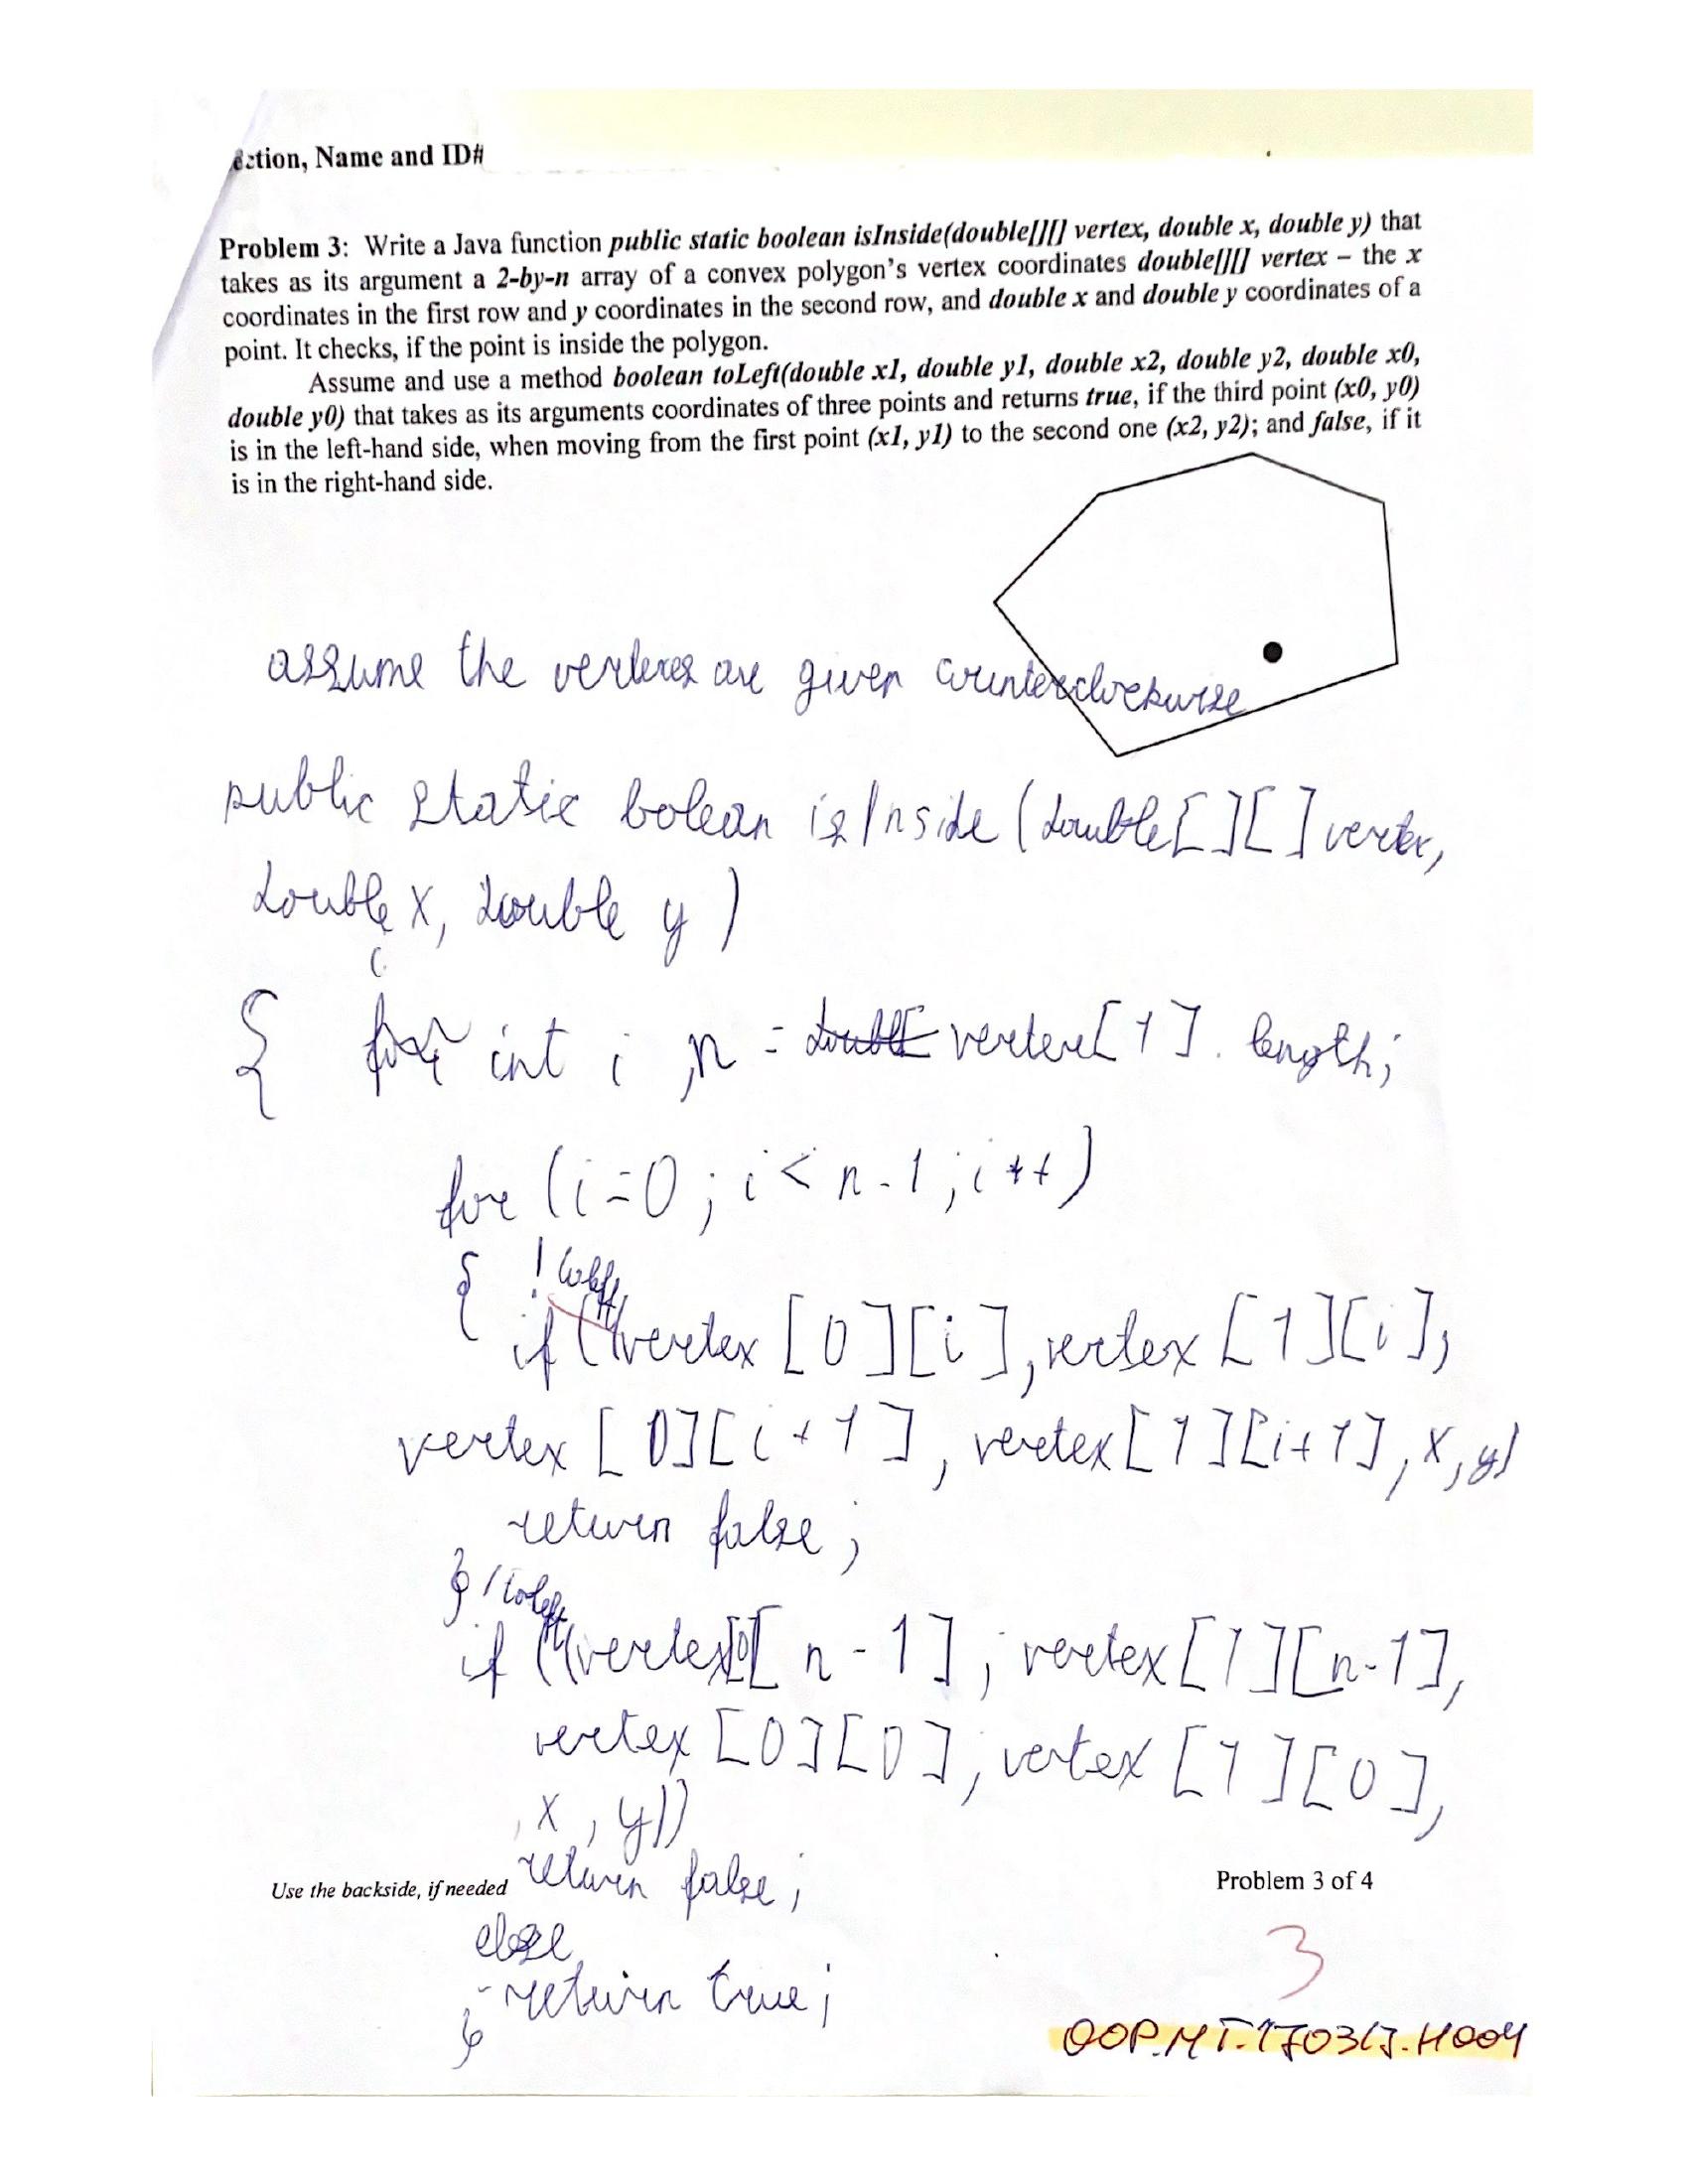 ection, Name and ID#
Problem 3: Write a Java function public static boolean isInside(double[][] vertex, double x, double y) that
takes as its argument a 2-by-n array of a convex polygon's vertex coordinates double[][] vertex – the x
coordinates in the first row and y coordinates in the second row, and double x and double y coordinates of a
point. It checks, if the point is inside the polygon.
Assume and use a method boolean toLeft(double x1, double y1, double x2, double y2, double x0,
double y0) that takes as its arguments coordinates of three points and returns true, if the third point (x0, y0)
is in the left-hand side, when moving from the first point (x1, y1) to the second one (x2, y2); and false, if it
is in the right-hand side.
assume the vertexes are given counterclockwise
public static bolean isInside (double[][] vertex,
double x, double y )
{ int i ,n = vertex[1]. length;
for (i=0 ; i < n-1 ; i++)
{ !toleft
if (vertex [0][i], vertex [1][i],
vertex [0][i+1], vertex [1][i+1], x, y)
return false ;
} !toleft
if (vertex[0][n-1], vertex[1][n-1],
vertex [0][0], vertex [1][0],
, x , y))
return false ;
Use the backside, if needed
Problem 3 of 4
else
return true ;
}
3
OOP.MT.170317.H004